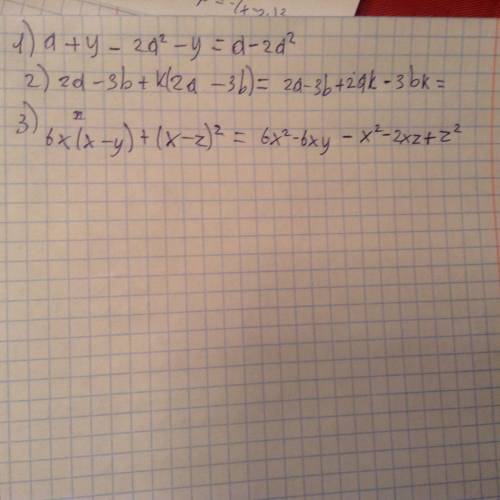 1) a + y - 2a² - y = a - 2a²
2) 2a - 3b + k(2a - 3b) = 2a - 3b + 2ak - 3bk =
3) 6x(x - y) + (x - z)² = 6x² - 6xy - x² - 2xz + z²